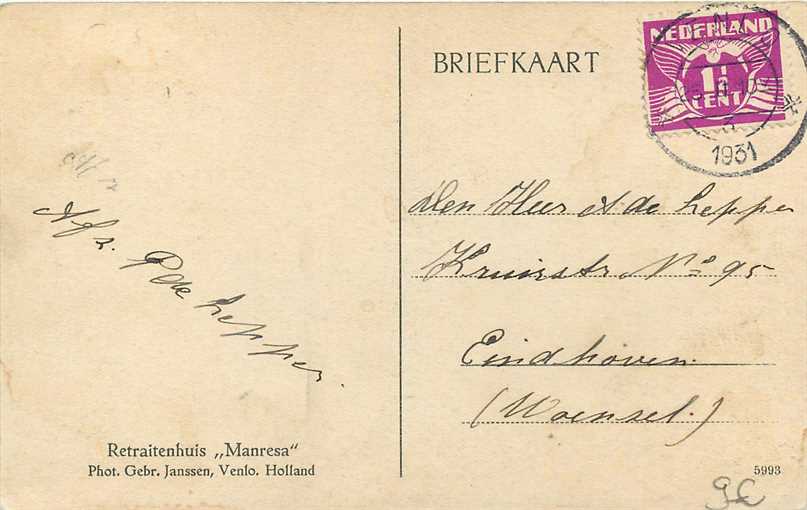 BRIEFKAART
NEDERLAND
1½
CENT
1931
Den Heer A de Lepper
Kruisstr No 95
Eindhoven.
(Woensel.)
Afz. P de Lepper.
Retraitenhuis „Manresa“
Phot. Gebr. Janssen, Venlo. Holland
5993
9€